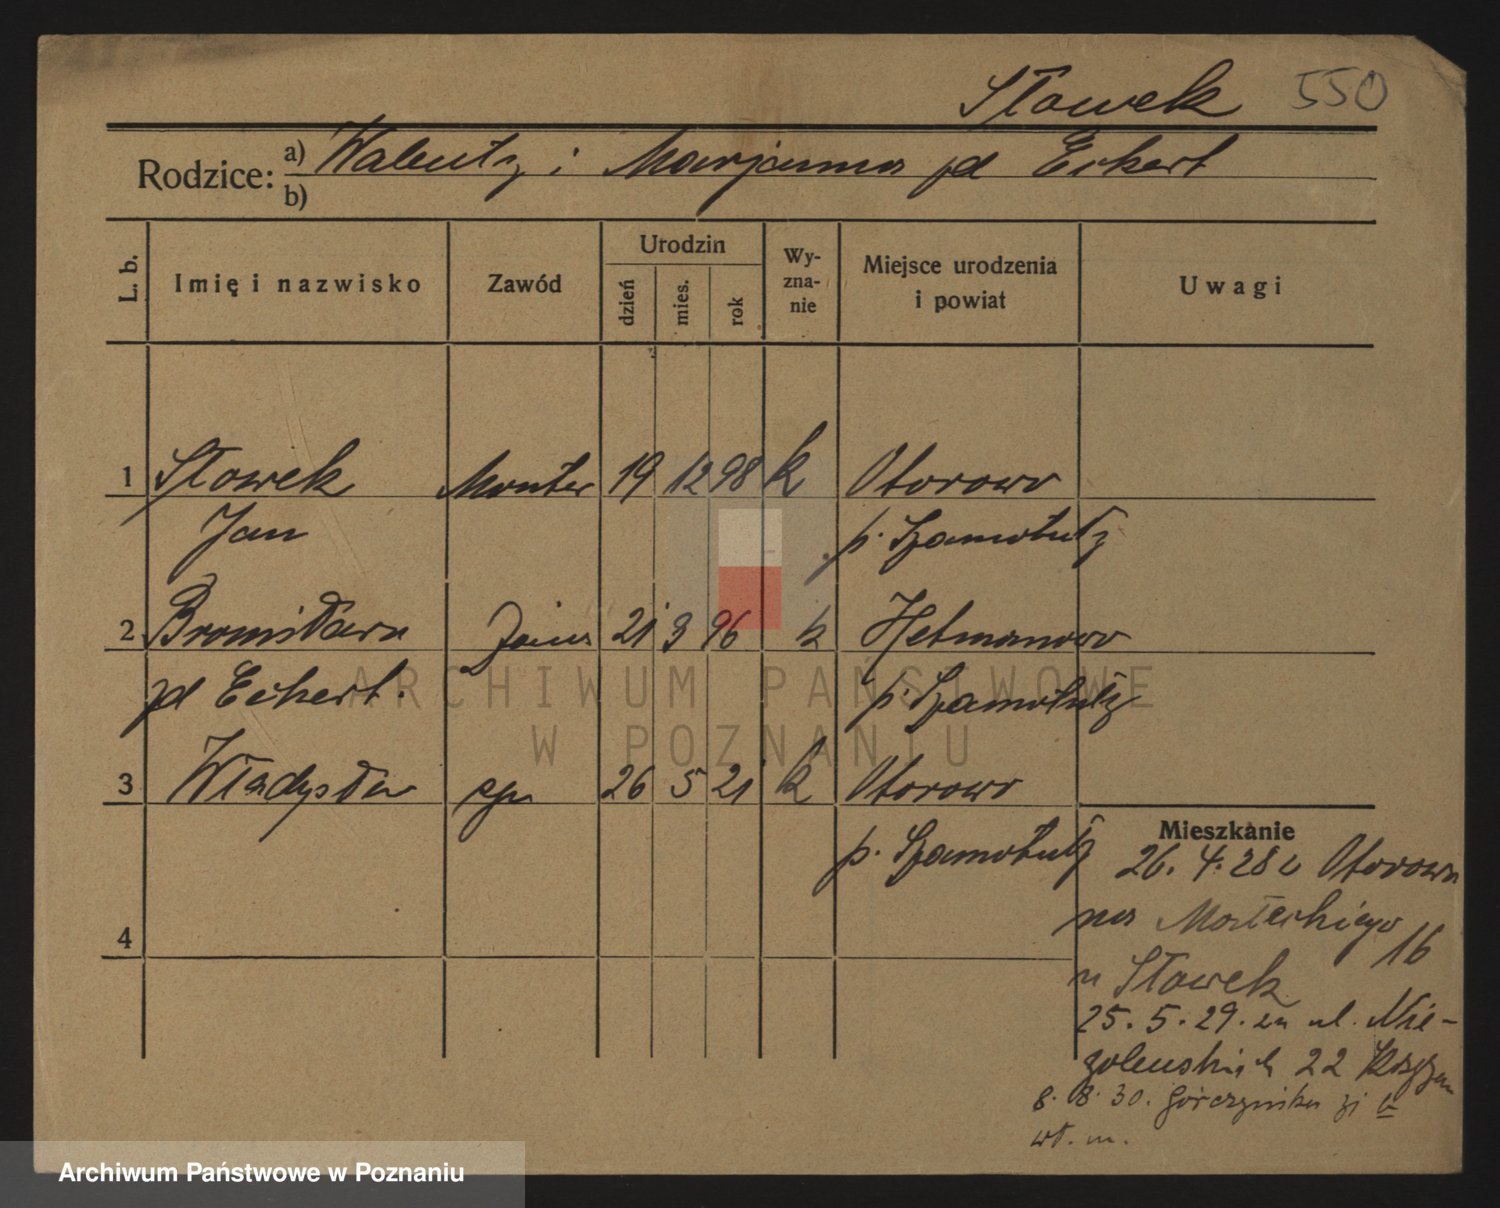 Słowek 550
Rodzice: a) Walenty i Marjanna zd Eckert
b)
L. b. Imię i nazwisko Zawód Urodzin dzień mies. rok Wy-zna-nie Miejsce urodzenia i powiat Uwagi
1 Słowek Monter 19 12 98 k Otorowo
Jan p. Szamotuły
2 Bronisława 21 3 96 k Hetmanowo
zd Eckert. p. Szamotuły
3 Władysław syn 26 5 21 k Otorowo
p. Szamotuły
Mieszkanie
26. 4. 28 z Otorowa
na Małeckiego 16
u Słowek
25. 5. 29. na ul. Nie-
golewskich 22
8. 8. 30. Górczyńska
wł. m.
4
ARCHIWUM PAŃSTWOWE
W POZNANIU
Archiwum Państwowe w Poznaniu